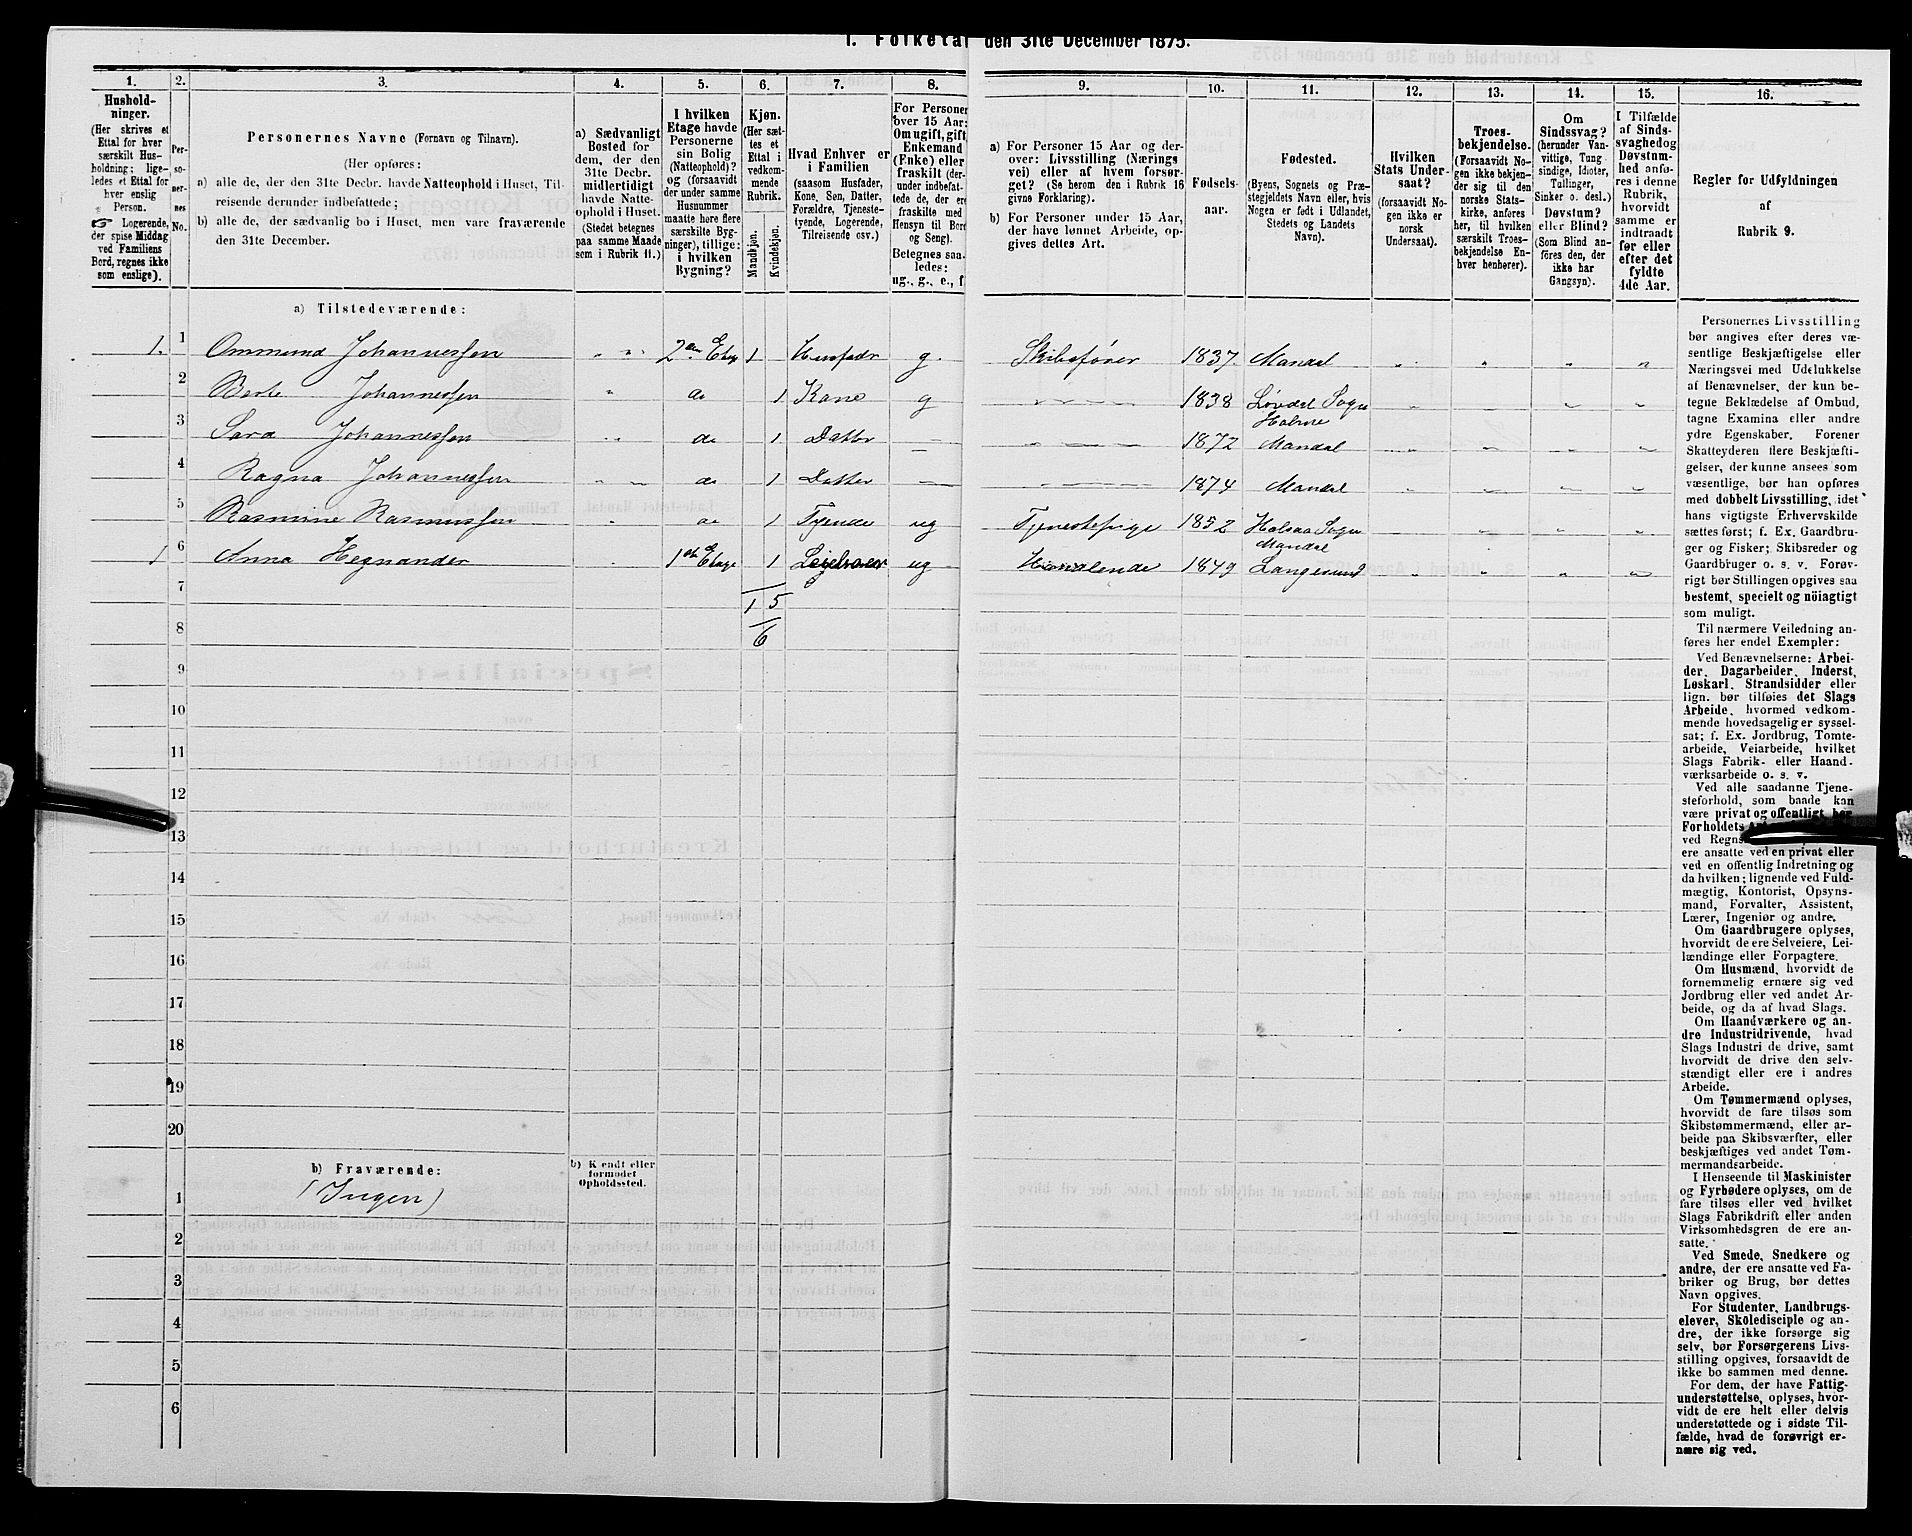 1. Folketal den 31te December 1875.
1. 2. 3. 4. 5. 6. 7. 8. 9. 10. 11. 12. 13. 14. 15. 16.
Hushold-
ninger.
(Her skrives et
Ettal for hver
særskilt Hus-
holdning; lige-
ledes et Ettal for
hver enslig
Person.
☞ Logerende,
der spise Middag
ved Familiens
Bord, regnes ikke
som enslige).
Per-
so-
ner-
nes
No.
Personernes Navne (Fornavn og Tilnavn).
(Her opføres:
a) alle de, der den 31te Decbr. havde Natteophold i Huset, Til-
reisende derunder indbefattede;
b) alle de, der sædvanlig bo i Huset, men vare fraværende
den 31te December.
a) Sædvanligt
Bosted for
dem, der den
31te Decbr.
midlertidigt
havde Natte-
ophold i Huset.
(Stedet betegnes
paa samme Maade
som i Rubrik 11.)
I hvilken
Etage havde
Personerne
sin Bolig
(Natteophold)?
og (forsaavidt
der under samme
Husnummer
maatte høre flere
særskilte Byg-
ninger), tillige:
i hvilken
Bygning?
Kjøn.
(Her sæt-
tes et
Ettal i
vedkom-
mende
Rubrik.
Mandkjøn.
Kvindekjøn.
Hvad Enhver er
i Familien
(saasom Husfader,
Kone, Søn, Datter,
Forældre, Tjeneste-
tyende, Logerende,
Tilreisende osv.)
For Personer
over 15 Aar:
Om ugift, gift,
Enkemand
(Enke) eller
fraskilt (der-
under indbefat-
tede de, der ere
fraskilte med
Hensyn til Bord
og Seng).
Betegnes saa-
ledes:
ug., g., e., f.
a) For Personer 15 Aar og der-
over: Livsstilling (Nærings
vei) eller af hvem forsør-
get? (Se herom den i Rubrik 16
givne Forklaring).
b) For Personer under 15 Aar,
der have lønnet Arbeide, op-
gives dettes Art.
Fødsels-
aar.
Fødested.
(Byens, Sognets og Præ-
stegjeldets Navn eller, hvis
Nogen er født i Udlandet,
Stedets og Landets
Navn).
Hvilken
Stats Under-
saat?
(forsaavidt No-
gen ikke er
norsk
Undersaat).
Troes-
bekjendelse.
(Forsaavidt No-
gen ikke bekjen-
der sig til den
norske Stats-
kirke, anføres
her, til hvilken
særskilt Troes-
bekjendelse En-
hver henhører).
Om
Sindssvag?
(herunder Van-
vittige, Tung
sindige, Idioter,
Tullinger,
Sinker o. desl.)
Døvstum?
eller Blind?
(Som Blind an-
føres den, der
ikke har
Gangsyn).
I Tilfælde
af Sinds-
svaghed og
Døvstum-
hed anfø-
res i denne
Rubrik,
hvorvidt
samme er
indtraadt
før eller
efter det
fyldte
4de Aar.
Regler for Udfyldningen
af
Rubrik 9.
a) Tilstedeværende:
1. 1 Ommund Johannessen „ „ 2den Etage 1 Husfader g. Skibsfører 1837. Mandal „ „ „ „
2 Berte Johannessen „ do 1 Kone g „ 1838 Løvdal Sogn „ „ „ „
Holme
3 Sara Johannessen „ „ do 1 Datter — „ 1872 Mandal „ „ „ „
4 Ragna Johannessen „ „ do 1 Datter — „ 1874 Mandal „ „ „ „
5 Rasmine Rasmussen „ do 1 Tyende ug Tjenestepige 1852 Halsaa Sogn „ „ „ „
Mandal
1 6 Anna Hegnander 1ste Etage 1 ug Handlende 1849 Langesund „ „ „ „
7 1 5
8 6
9
10
11
12
13
14
15
16
17
18
19
20
b) Fraværende:
b) Kendt eller
formodet
Opholdssted.
1 (Ingen)
2
3
4
5
6
Personernes Livsstilling
bør angives efter deres væ-
sentlige Beskjæftigelse eller
Næringsvei med Udelukkelse
af Benævnelser, der kun be-
tegne Beklædelse af Ombud,
tagne Examina eller andre
ydre Egenskaber. Forener
Skatteyderen flere Beskjæfti-
gelser, der kunne ansees som
væsentlige, bør han opføres
med dobbelt Livsstilling, idet
hans vigtigste Erhvervskilde
sættes først; f. Ex. Gaardbru-
ger og Fisker; Skibsreder og
Gaardbruger o. s. v. Forøv-
rigt bør Stillingen opgives saa
bestemt, specielt og nöiagtigt
som muligt.
Til nærmere Veiledning an-
føres her endel Exempler:
Ved Benævnelserne: Arbei-
der, Dagarbeider, Inderst,
Løskarl, Strandsidder eller
lign. bør tilføies det Slags
Arbeide, hvormed vedkom-
mende hovedsagelig er syssel-
sat; f. Ex. Jordbrug, Tomte-
arbeide, Veiarbeide, hvilket
Slags Fabrik- eller Haand-
værksarbeide o. s. v.
Ved alle saadanne Tjene-
steforhold, som baade kan
være privat og offentligt, bør
Forholdets
ved Regns
ere ansatte ved en privat eller
ved en offentlig Indretning og
da hvilken; lignende ved Fuld-
mægtig, Kontorist, Opsyns-
mand, Forvalter, Assistent,
Lærer, Ingeniør og andre.
Om Gaardbrugere oplyses,
hvorvidt de ere Selveiere, Lei-
lændinge eller Forpagtere.
Om Husmænd, hvorvidt de
fornemmelig ernære sig ved
Jordbrug eller ved andet Ar-
beide, og da af hvad Slags.
Om Haandværkere og an-
dre Industridrivende, hvad
Slags Industri de drive, samt
hvorvidt de drive den selv-
stændigt eller ere i andres
Arbeide.
Om Tømmermænd oplyses,
hvorvidt de fare tilsøs som
Skibstømmermænd, eller ar-
beide paa Skibsværfter, eller
beskjæftiges ved andet Tøm-
mermandsarbeide.
I Henseende til Maskinister
og Fyrbødere oplyses, om de
fare tilsøs eller ved hvilket
Slags Fabrikdrift eller anden
Virksomhedsgren de ere an-
satte.
Ved Smede, Snedkere og
andre, der ere ansatte ved Fa-
briker og Brug, bør dettes
Navn opgives.
For Studenter, Landbrugs-
elever, Skoledisciple og an-
dre, der ikke forsørge sig
selv, bør Forsørgerens Livs-
stilling opgives, forsaavidt de
ikke bo sammen med denne.
For dem, der have Fattig-
understøttelse, oplyses, hvor-
vidt de ere helt eller delvis
understøttede og i sidste Til-
fælde, hvad de forøvrigt er-
nære sig ved.